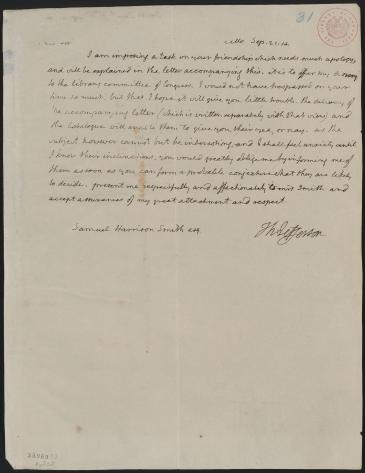 31
Mllo Sep. 21. 14
I am imposing a task on your friendship which needs much apology,
and will be explained in the letter accompanying this. it is to offer my library
to the library committee of Congress. I would not have trespassed on your
time so much, but that I hope it will give you little trouble. the delivery of
the accompanying letter (which is written separately with that view) and
the catalogue will enable them to give you their yea, or nay. as the
subject however cannot but be interesting, and I shall feel anxiety until
I know their inclinations, you would greatly oblige me by informing me of
them as soon as you can form a probable conjecture what they are likely
to decide. present me respectfully and affectionately to mrs Smith and
accept assurances of my great attachment and respect.
Th: Jefferson
Samuel Harrison Smith esq.